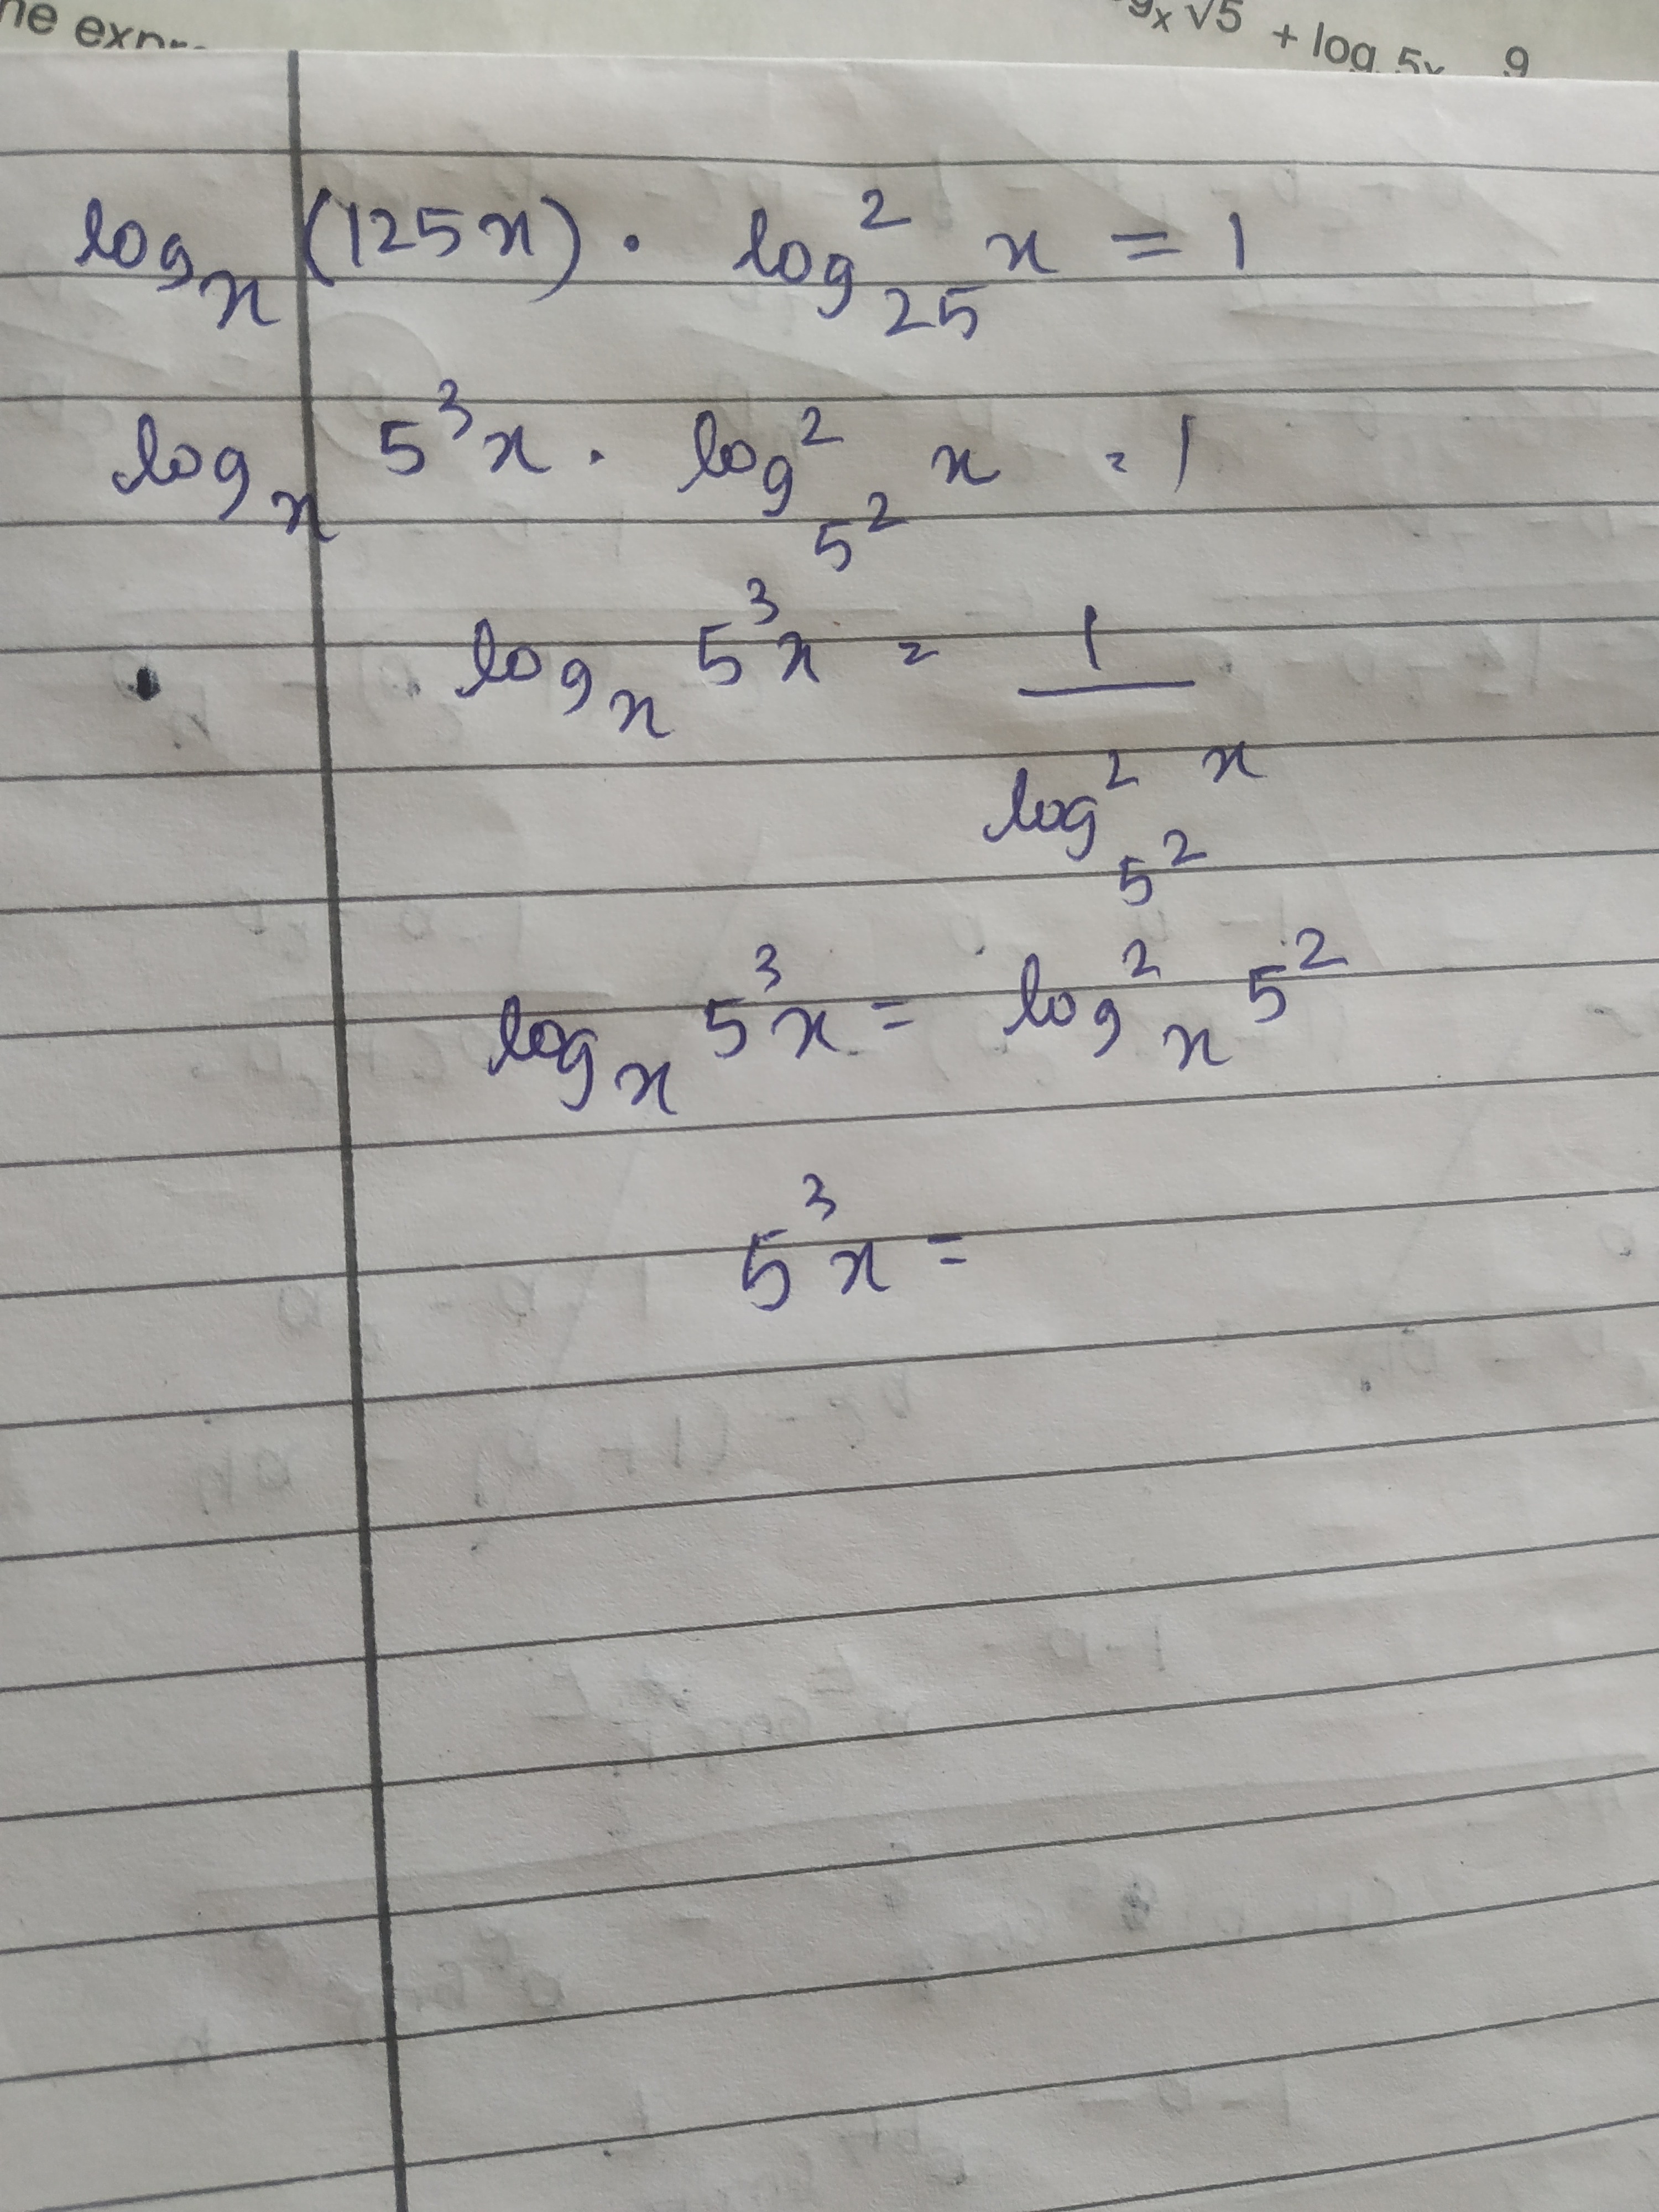 he expr
x √5 + log 5x 9
log_x (125x) · log²_25 x = 1
log_x 5³x · log²_5² x = 1
log_x 5³x = 1 / log²_5² x
log_x 5³x = log²_x 5²
5³x =